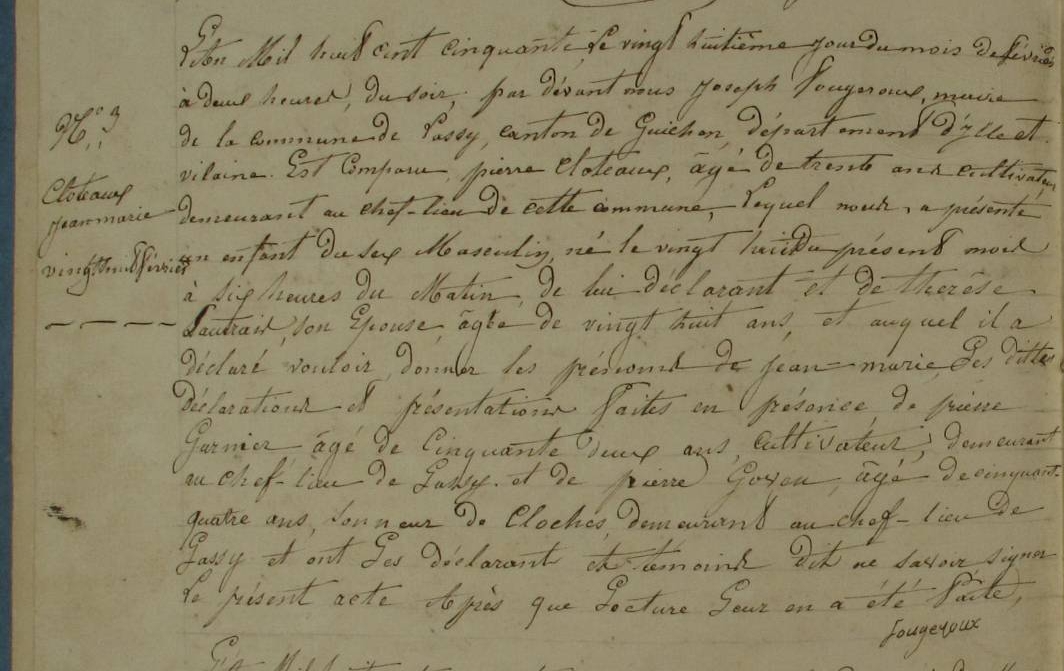 N.° 3
Cloteaux
jean marie
vingt huit février
L'An Mil huit cent cinquante, Le vingt huitième jour du mois de février
à deux heures, du soir, par dévant nous Joseph Fougeroux, maire
de la commune de Lassy, canton de Guichen, département d'ylle et
vilaine. Est Comparu, pierre Cloteaux, âgé de trente ans cultivateur
demeurant au chef-lieu de cette commune, Lequel nous, a présenté
un enfant du sex Masculin, né le vingt huit du présent mois
à six heures du Matin, de lui déclarant et de thérèse
Lautrais, son Epouse âgée de vingt huit ans, et auquel il a
déclaré vouloir, donner les prénoms de jean-marie, Les dittes
Déclarations et présentations faites en présence de pierre
Garnier âgé de Cinquante deux ans, cultivateur, demeurant
au chef-lieu de Lassy. et de pierre Goven, âgé de cinquant-
quatre ans, Sonneur de Cloches, demeurant au chef-lieu de
Lassy et ont Les déclarant et témoins Dit ne savoir signer
Le présent acte Après que Lecture Leur en a été faite,
fougeroux